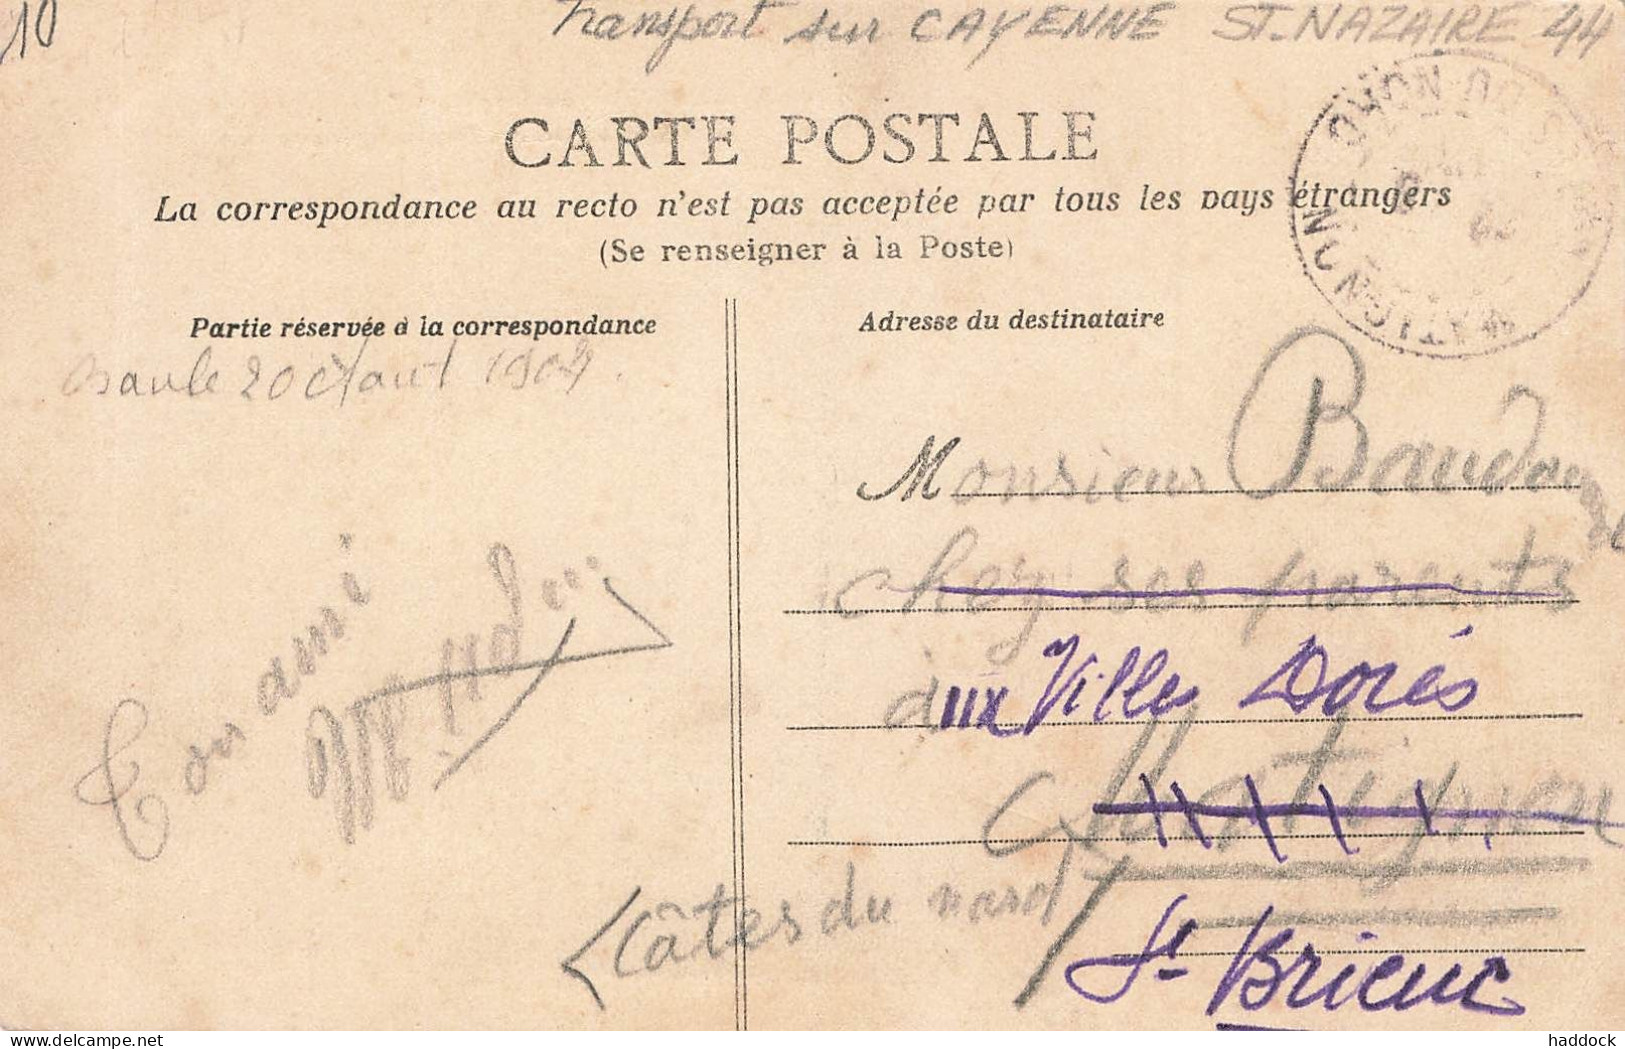 10
Transport sur CAYENNE ST. NAZAIRE 44
CARTE POSTALE
La correspondance au recto n'est pas acceptée par tous les pays étrangers
(Se renseigner à la Poste)
Partie réservée à la correspondance
Baule 20 d'aout 1904.
Ton ami
Adresse du destinataire
Monsieur
chez ses parents
aux Villes Dorés
Matignon
(Côtes du nord)
St-Brieuc
MATIGNON
CÔTES DU NORD
delcampe.net
haddock